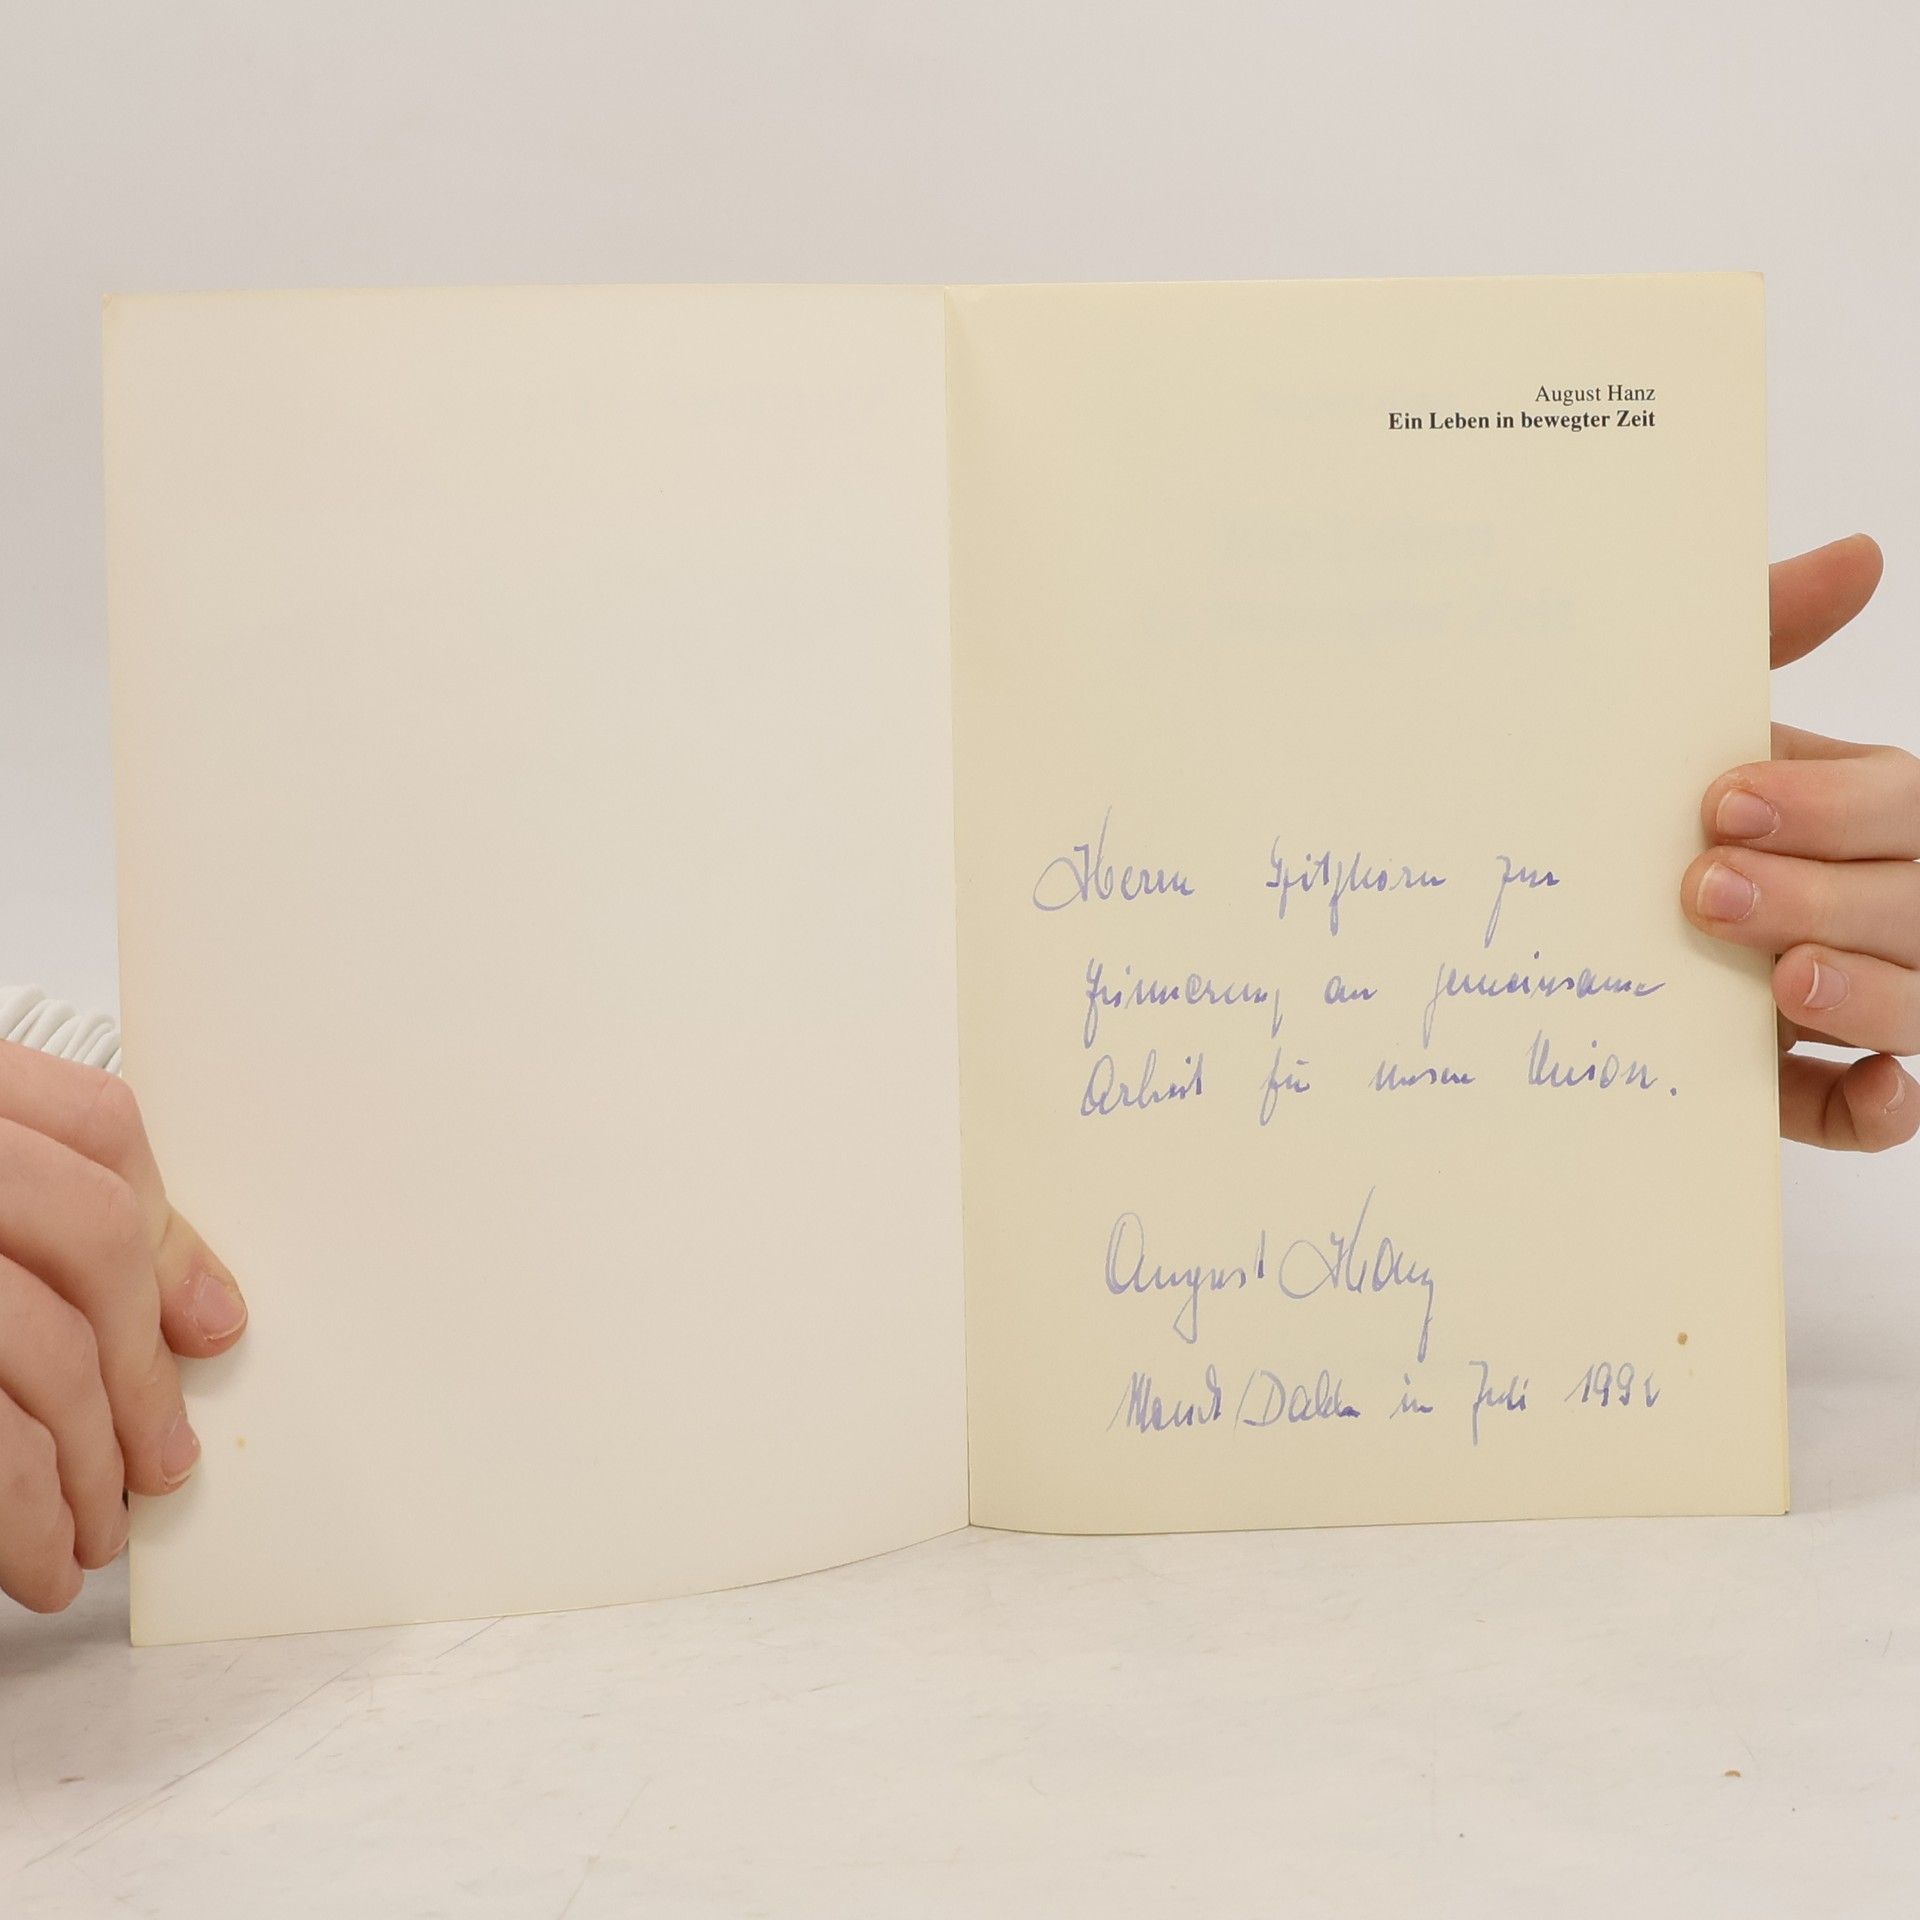 August Hanz
Ein Leben in bewegter Zeit
Herrn Spitzhorn zur
Erinnerung an gemeinsame
Arbeit für unsere Union.
August Hanz
in Juli 1992